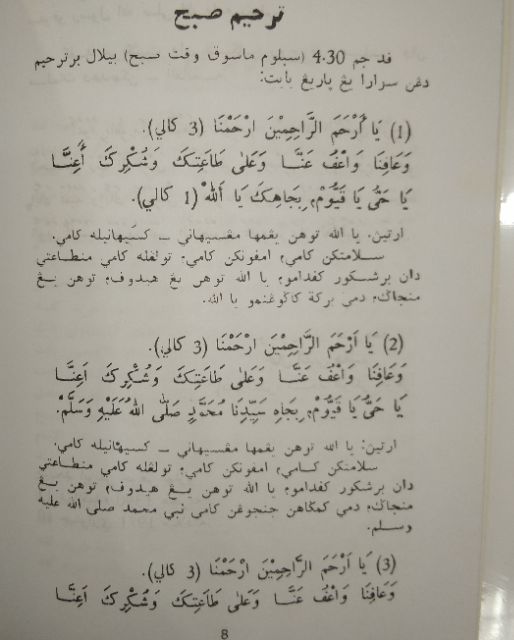 ترحيم صبح
ڤد جم 4.30 (سبلوم ماسوق وقت صبح) بيلال برترحيم
دڠن سوارا يڠ ڽاريڠ بابت:
(1) يَا أَرْحَمَ الرَّاحِمِيْنَ ارْحَمْنَا (3 كالي).
وَعَافِنَا وَاعْفُ عَنَّا وَعَلٰى طَاعَتِكَ وَشُكْرِكَ أَعِنَّا
يَا حَيُّ يَا قَيُّوْمُ، بِجَاهِكَ يَا اَللّٰهُ (1 كالي).
ارتين: يا الله توهن يڠمها مڠسيهاني – كسيهانيله كامي.
سلامتكن كامي، امڤونكن كامي، تولڠله كامي منطاعتي
دان برشكور كڤدامو، يا الله توهن يڠ هيدوف، توهن يڠ
منجاڬ، دمي بركة كاڬوڠنمو يا الله.
(2) يَا اَرْحَمَ الرَّاحِمِيْنَ ارْحَمْنَا (3 كالي).
وَعَافِنَا وَاعْفُ عَنَّا وَعَلٰى طَاعَتِكَ وَشُكْرِكَ اَعِنَّا
يَا حَيُّ يَا قَيُّوْمُ، بِجَاهِ سَيِّدِنَا مُحَمَّدٍ صَلَّى اللهُ عَلَيْهِ وَسَلَّمْ.
ارتين: يا الله توهن يڠمها مڠسيهاني – كسيهانيله كامي.
سلامتكن كامي، امڤونكن كامي، تولڠله كامي منطاعتي
دان برشكور كڤدامو، يا الله توهن يڠ هيدوف، توهن يڠ
منجاڬ، دمي كمڬاهن جنجوڠن كامي نبي محمد صلى الله عليه
وسلم.
(3) يَا اَرْحَمَ الرَّاحِمِيْنَ ارْحَمْنَا (3 كالي).
وَعَافِنَا وَاعْفُ عَنَّا وَعَلٰى طَاعَتِكَ وَشُكْرِكَ اَعِنَّا
8